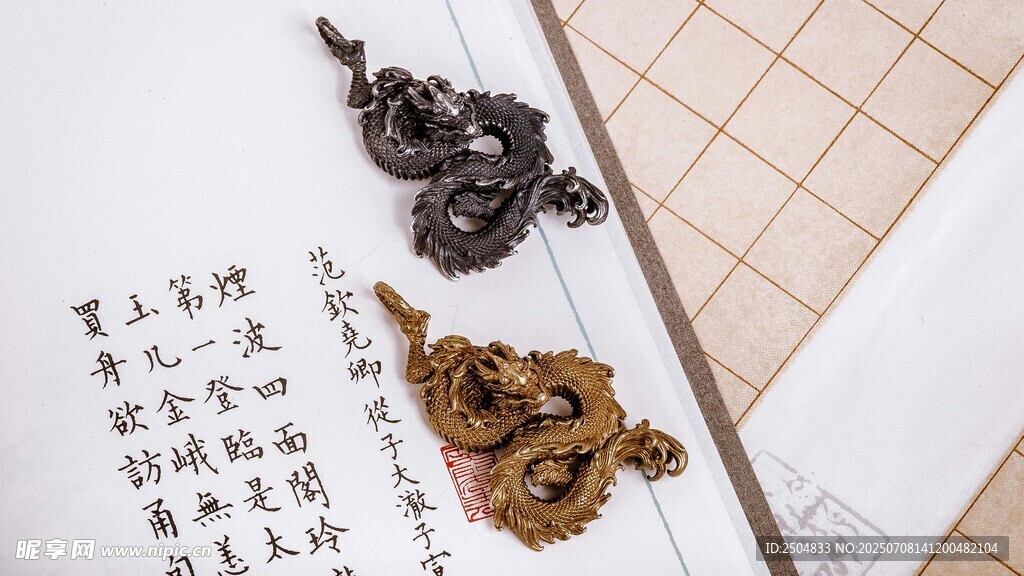 范欽堯卿從子大澈子宣
煙波四面閣玲
第一登臨是太
玉几金峨無恙
買舟欲訪甬句
昵享网 www.nipic.cn
ID:2504833 NO:20250708141200482104